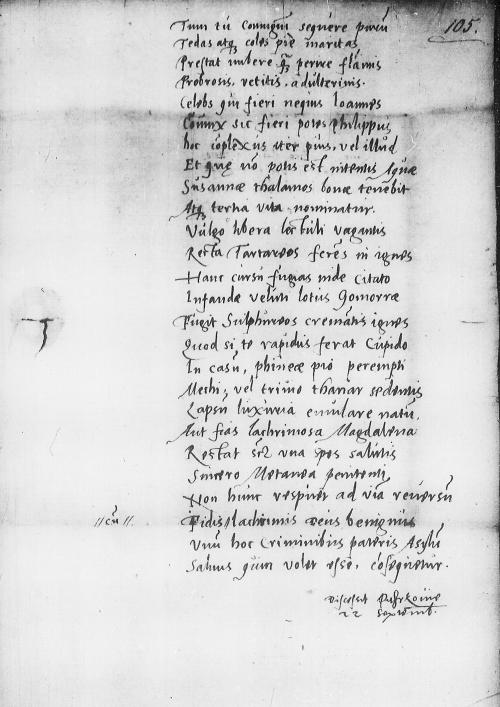 105.
Tum tu Coniugium sequere purum
Tedas atq; coles pie maritas
Prestat nubere q̃ perire flamis
Probrosis, vetitis, adulterinis.
Celebs qui fieri nequis Ioannes
Coniux sic fieri potes Philippus
hoc coplexus iter pius, vel illud
Et quę nõ potis est nitentis Aquæ
Susannæ thalamos bonæ tenebit
Atq; tertia vita nominatur.
Vulgo libera lectuli vagantis
Recta Tartareos feres in ignes
Hanc cursu fugias inde citato
Infandæ veluti lotus Gomorræ
Fugit Sulphureos crematis ignes
Quod si te rapidus ferat Cupido
In casum, phineæ pio perempti
Mechi, vel trimo thamar sedentis
Lapsu luxuria emulare natum,
Aut fias lachrimosa Magdalena
Restat una spes salutis
Sincero Metanea penitenti
Non hunc respuet ad viã reversum
//cũ//. Fidis/lachrimis deus benignus
Vnu hoc Criminibus pateris Asylũ
Salvus quim volet esse, cõsequetur.
Discessit
22 Septemb.